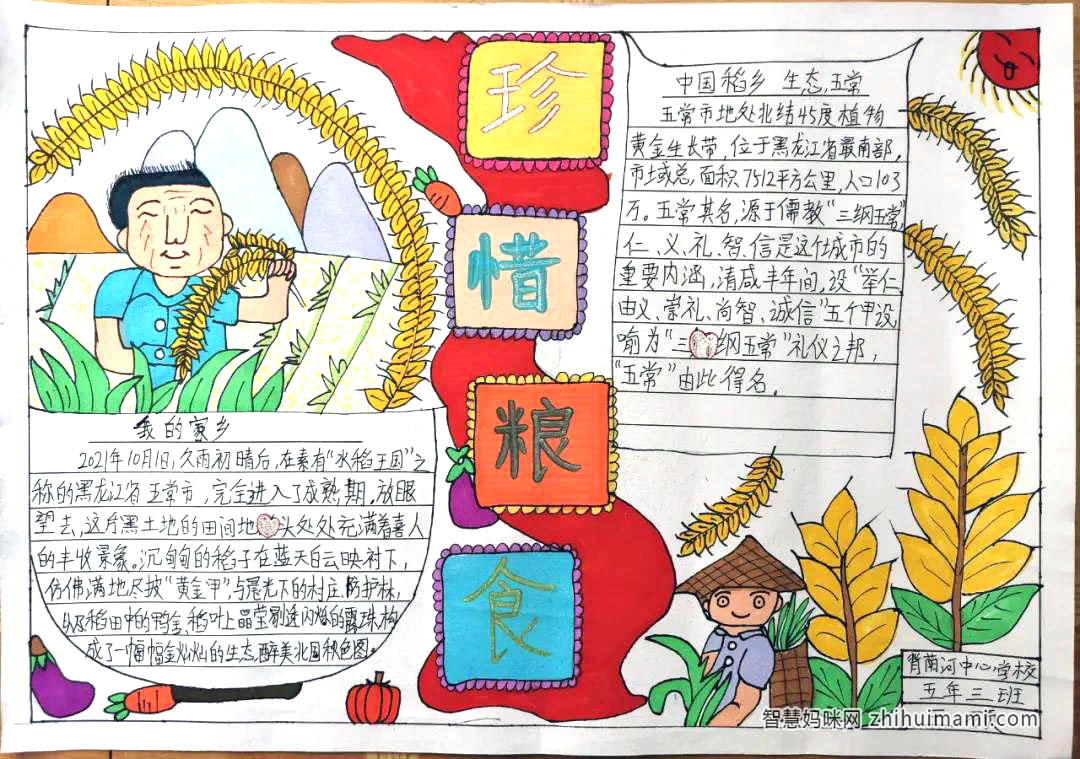 珍
惜
粮
食
中国稻乡 生态五常
五常市地处北纬45度植物
黄金生长带，位于黑龙江省最南部，
市域总，面积7512平方公里，人口103
万。五常其名，源于儒教“三纲五常”
仁、义、礼、智、信是这个城市的
重要内涵，清咸丰年间，设“举仁
由义、崇礼、尚智、诚信”五个甲设
喻为“三纲五常”礼仪之邦，
“五常”由此得名。
我的家乡
2021年10月1日，久雨初晴后，在素有“水稻王国”之
称的黑龙江省五常市，完全进入了成熟期。放眼
望去，这片黑土地的田间地头处处充满着喜人
的丰收景象。沉甸甸的稻子在蓝天白云映衬下，
仿佛满地尽披“黄金甲”与晨光下的村庄、防护林，
以及稻田中的鸭舍、稻叶上晶莹剔透闪烁的露珠，构
成了一幅幅金灿灿的生态醉美北国秋色图。
背荫河中心学校
五年三班
智慧妈咪网 zhihuimami.com